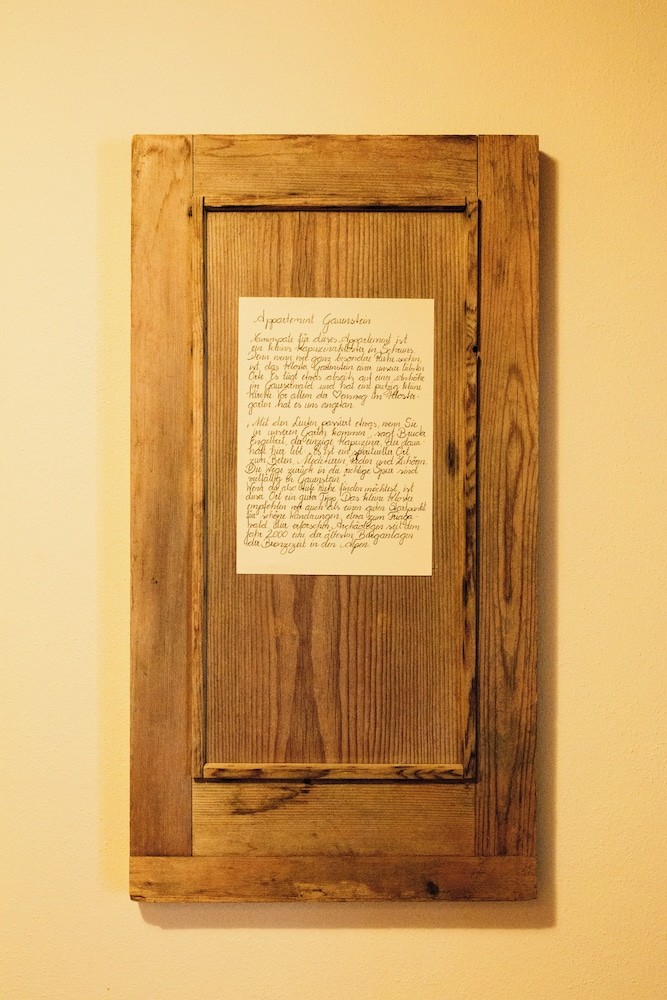 Appartement Gauenstein
Namenspate für dieses Appartement ist
ein kleines Kapuzinerkloster in Schruns.
Denn wenn wir ganz besondere Ruhe suchen,
ist das Kloster Gauenstein einer unserer liebsten
Orte. Es liegt etwas abseits auf einer Anhöhe
im Gauertwald und hat eine putzig kleine
Kirche. Vor allem der Venusweg im Kloster-
garten hat es uns angetan.
„Mit den Leuten passiert etwas, wenn Sie
in unseren Garten kommen", sagt Bruder
Engelbert, der einzige Kapuziner, der dauer-
haft hier lebt. „Es ist ein spiritueller Ort
zum Beten, Meditieren, Reden und Zuhören.
Die Wege zurück in die richtige Spur sind
vielfältig in Gauenstein."
Wenn du also Ruhe finden möchtest, ist
dieser Ort ein guter Tipp. Das kleine Kloster
empfehlen wir auch als einen guten Startpunkt
für schöne Wanderungen, etwa zum
wald. Hier erforschen Archäologen seit dem
Jahr 2000 eine der ältesten Burganlagen
der Bronzezeit in den Alpen.